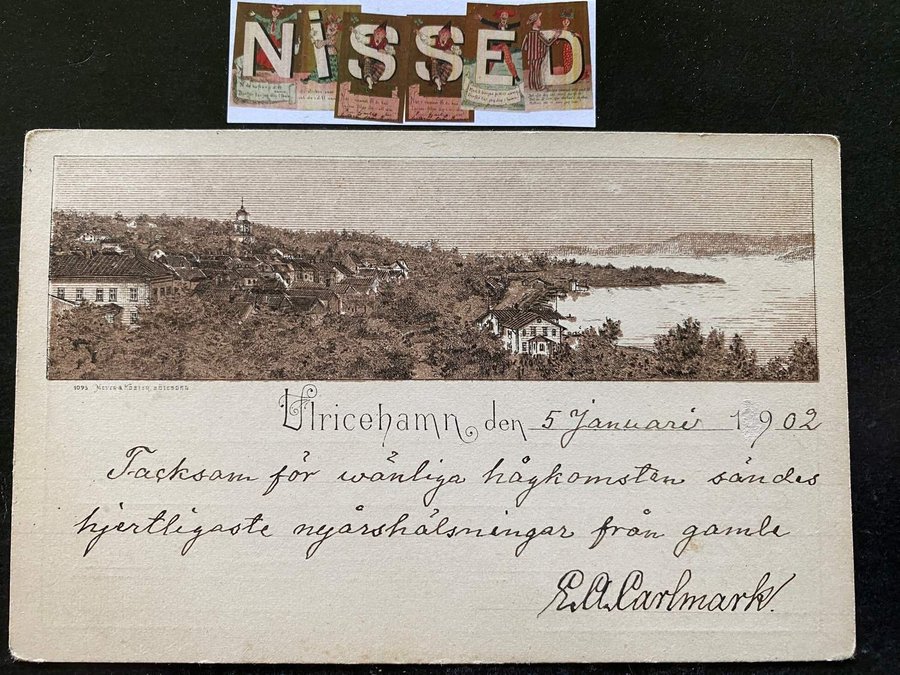 NiSSED
1093 MEYER & KÖSTER, GÖTEBORG
Ulricehamn den 5 Januari 1902
Tacksam för wänliga hågkomsten sändes
hjertligaste nyårshälsningar från gamle
E.A. Carlmark.